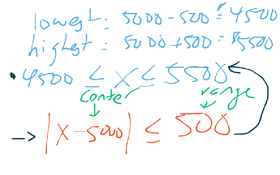 lowest: 5000 - 500 = 4500
highest: 5000 + 500 = 5500
• 4500 ≤ x ≤ 5500
range
-> |x - 5000| ≤ 500